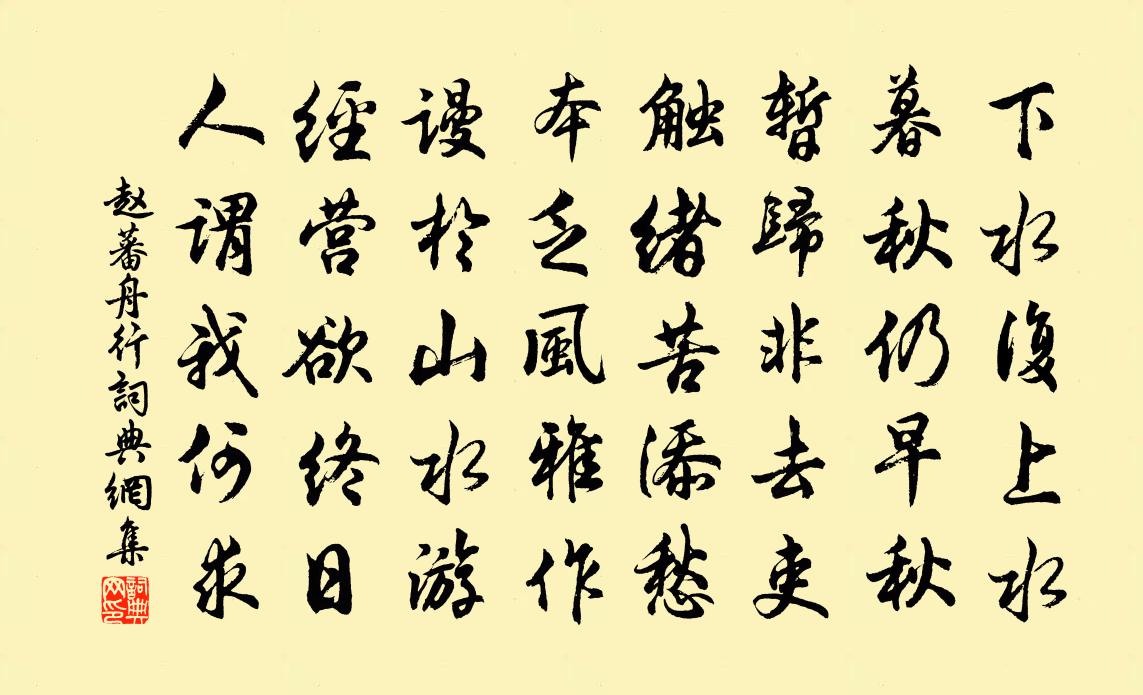 下水復上水
暮秋仍早秋
暫歸非去吏
触緒苦添愁
本乏風雅作
謾於山水游
經营欲终日
人謂我何求
赵蕃舟行詞典網集
詞典網印